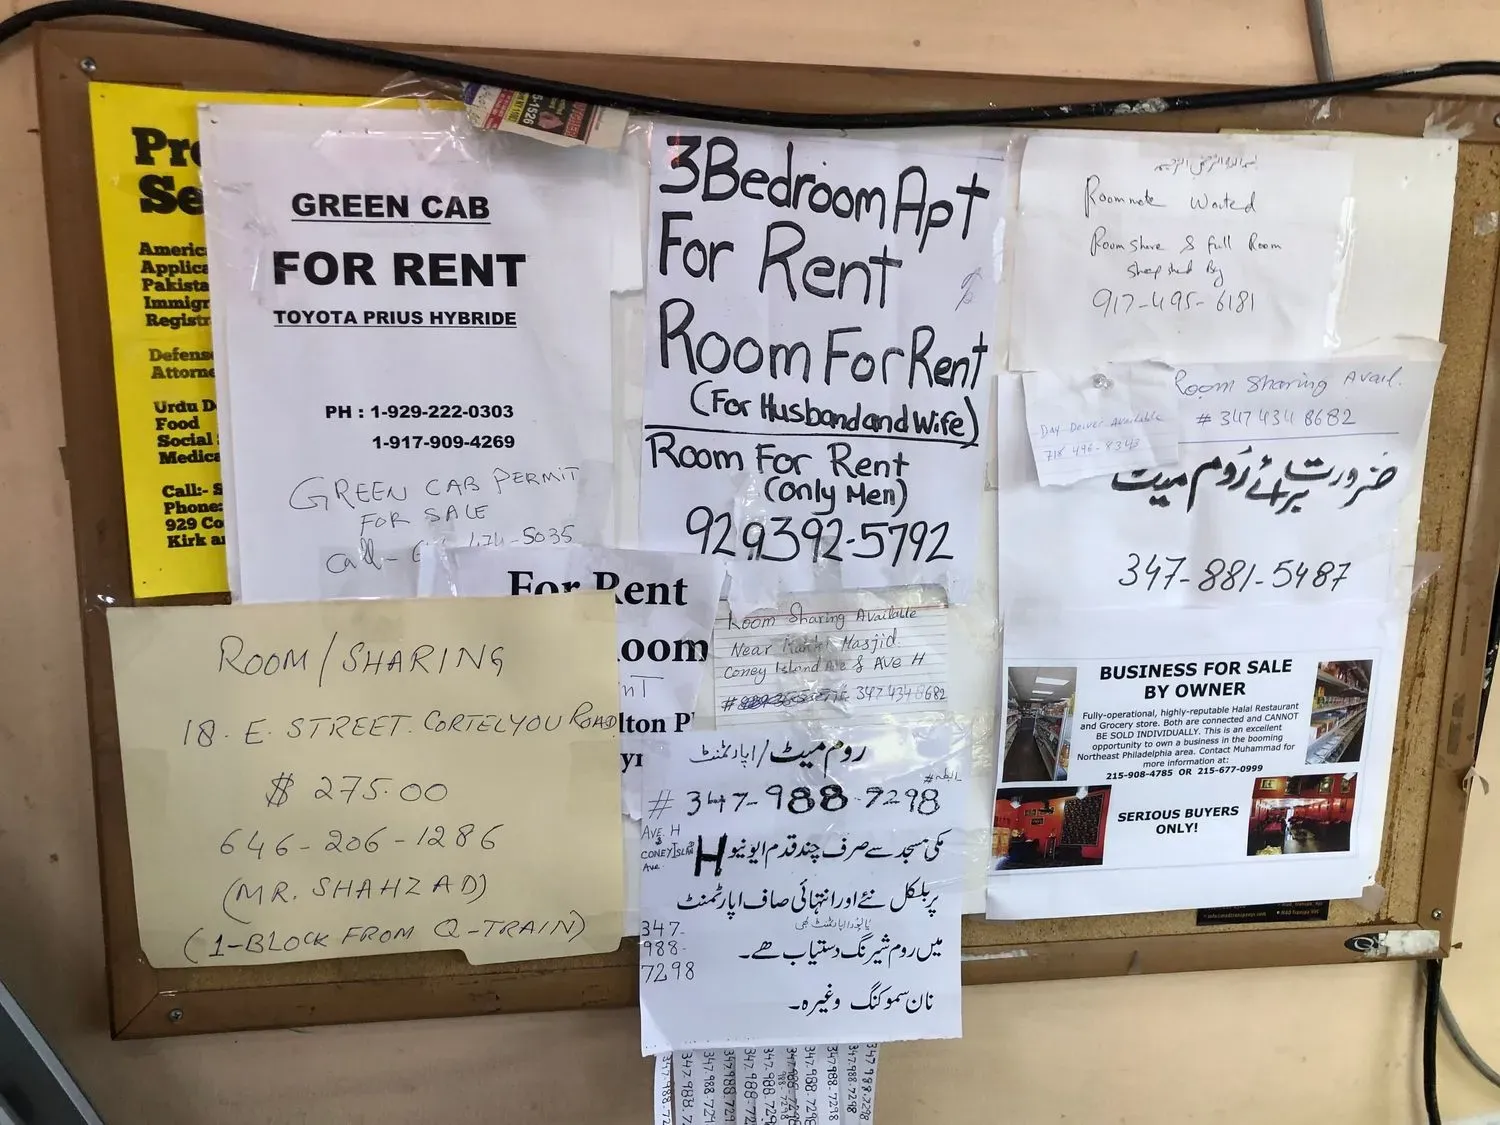 Americ
Applica
Pakista
Immigr
Registr
Defense
Attorne
Urdu D
Food
Social
Medica
Call:- S
Phone:
929 Co
Kirk a
GREEN CAB
FOR RENT
TOYOTA PRIUS HYBRIDE
PH : 1-929-222-0303
1-917-909-4269
GREEN CAB PERMIT
FOR SALE
Call- 474-5035
3 Bedroom Apt
For Rent
Room For Rent
(For Husband and Wife)
Room For Rent
(only Men)
929392-5792
Roommate Wanted
Room Share & Full Room
917-495-6181
Room Sharing Avail.
# 347 434 8682
Day Driver Available
718 496-8343
ضرورت برائے روم میٹ
347-881-5487
BUSINESS FOR SALE
BY OWNER
Fully-operational, highly-reputable Halal Restaurant
and Grocery store. Both are connected and CANNOT
BE SOLD INDIVIDUALLY. This is an excellent
opportunity to own a business in the booming
Northeast Philadelphia area. Contact Muhammad for
more information at:
215-908-4785 OR 215-677-0999
SERIOUS BUYERS
ONLY!
For Rent
oom
lton P
ROOM/SHARING
18. E. STREET. CORTELYOU ROAD
$ 275.00
646-206-1286
(MR. SHAHZAD)
(1-BLOCK FROM Q-TRAIN)
Room Sharing Available
Near Makki Masjid.
Coney Island Ave & Ave H
# 347 434 8682
روم میٹ/اپارٹمنٹ
رابطہ #
# 347-988-7298
AVE. H
&
CONEY ISLAN
Ave.
مکی مسجد سے صرف چند قدم ایونیو H
پر بلکل نئے اور انتہائی صاف اپارٹمنٹ
یا پورا اپارٹمنٹ بھی
میں روم شیرنگ دستیاب ھے۔
347-
988-
7298
نان سموکنگ وغیرہ۔
347-988-72
347-988-7
347-988-729
347-988-729
347-988-72
347-988-729
347-988-7298
347-988-7298
347-988-7298
347-988-7298
347 988 7298